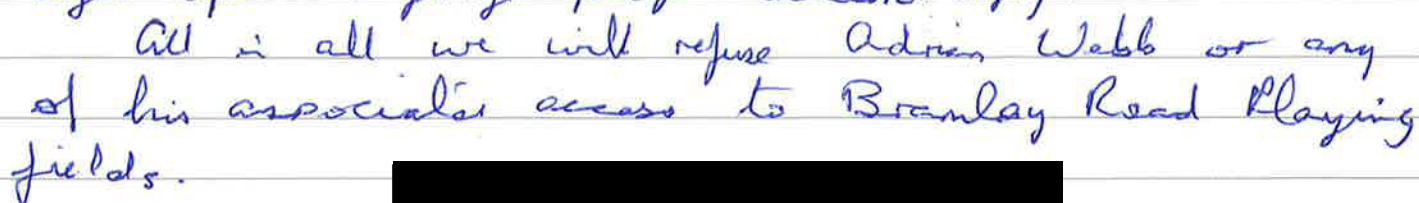 All in all we will refuse Adrian Webb or any
of his associates access to Bramley Road Playing
fields.